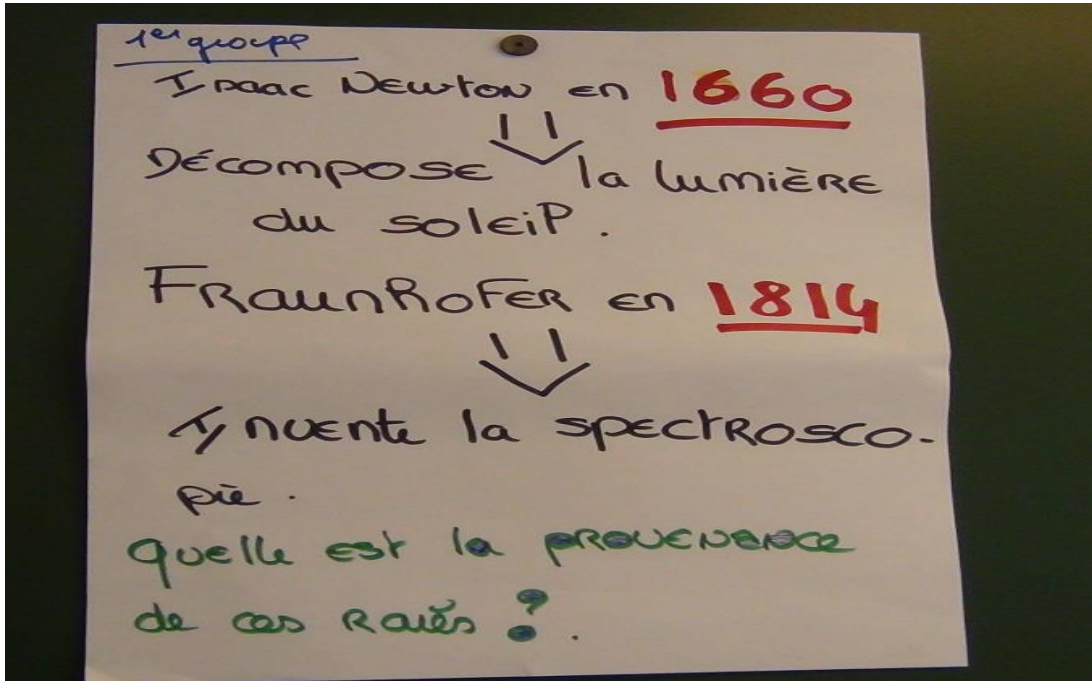 1er groupe
Isaac Newton en 1660
Décompose la lumière
du soleil.
Fraunhofer en 1814
Invente la spectrosco-
pie.
quelle est la provenance
de ces raies ?.